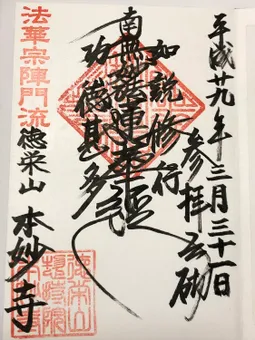 平成廿九年三月三十一日
参拝之砌
如説修行
南無妙法蓮華経
功徳甚多
法華宗陣門流
徳栄山
本妙寺